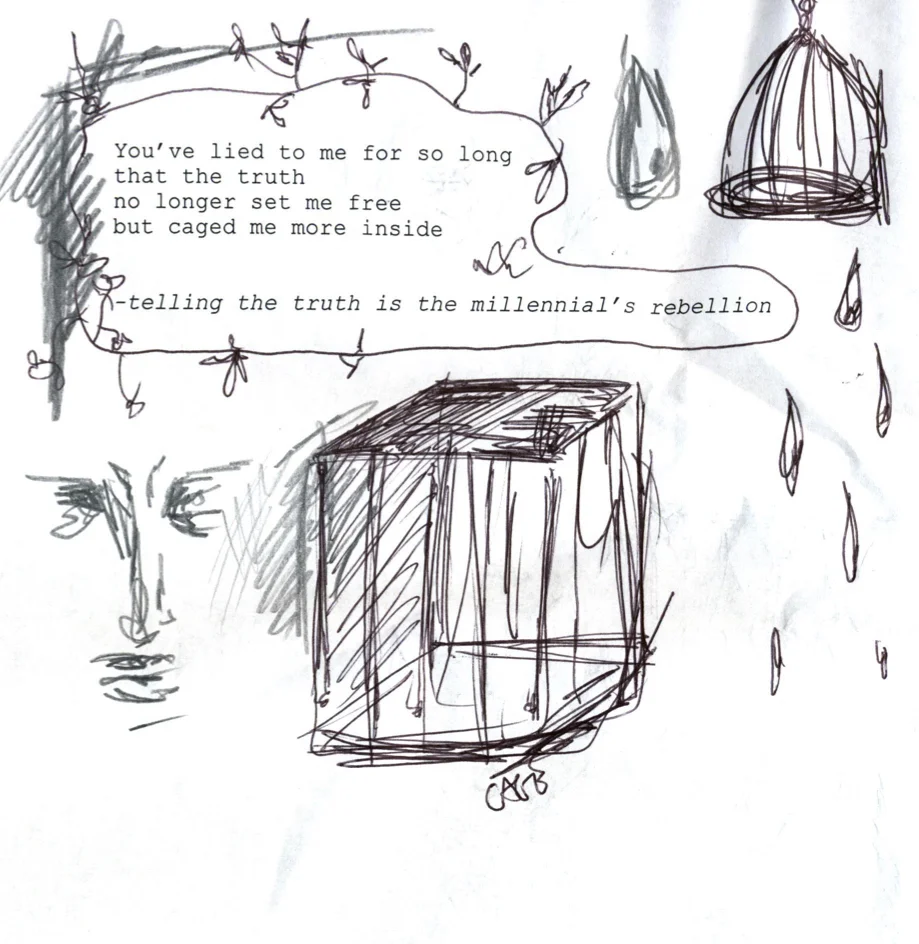 You've lied to me for so long
that the truth
no longer set me free
but caged me more inside
-telling the truth is the millennial's rebellion